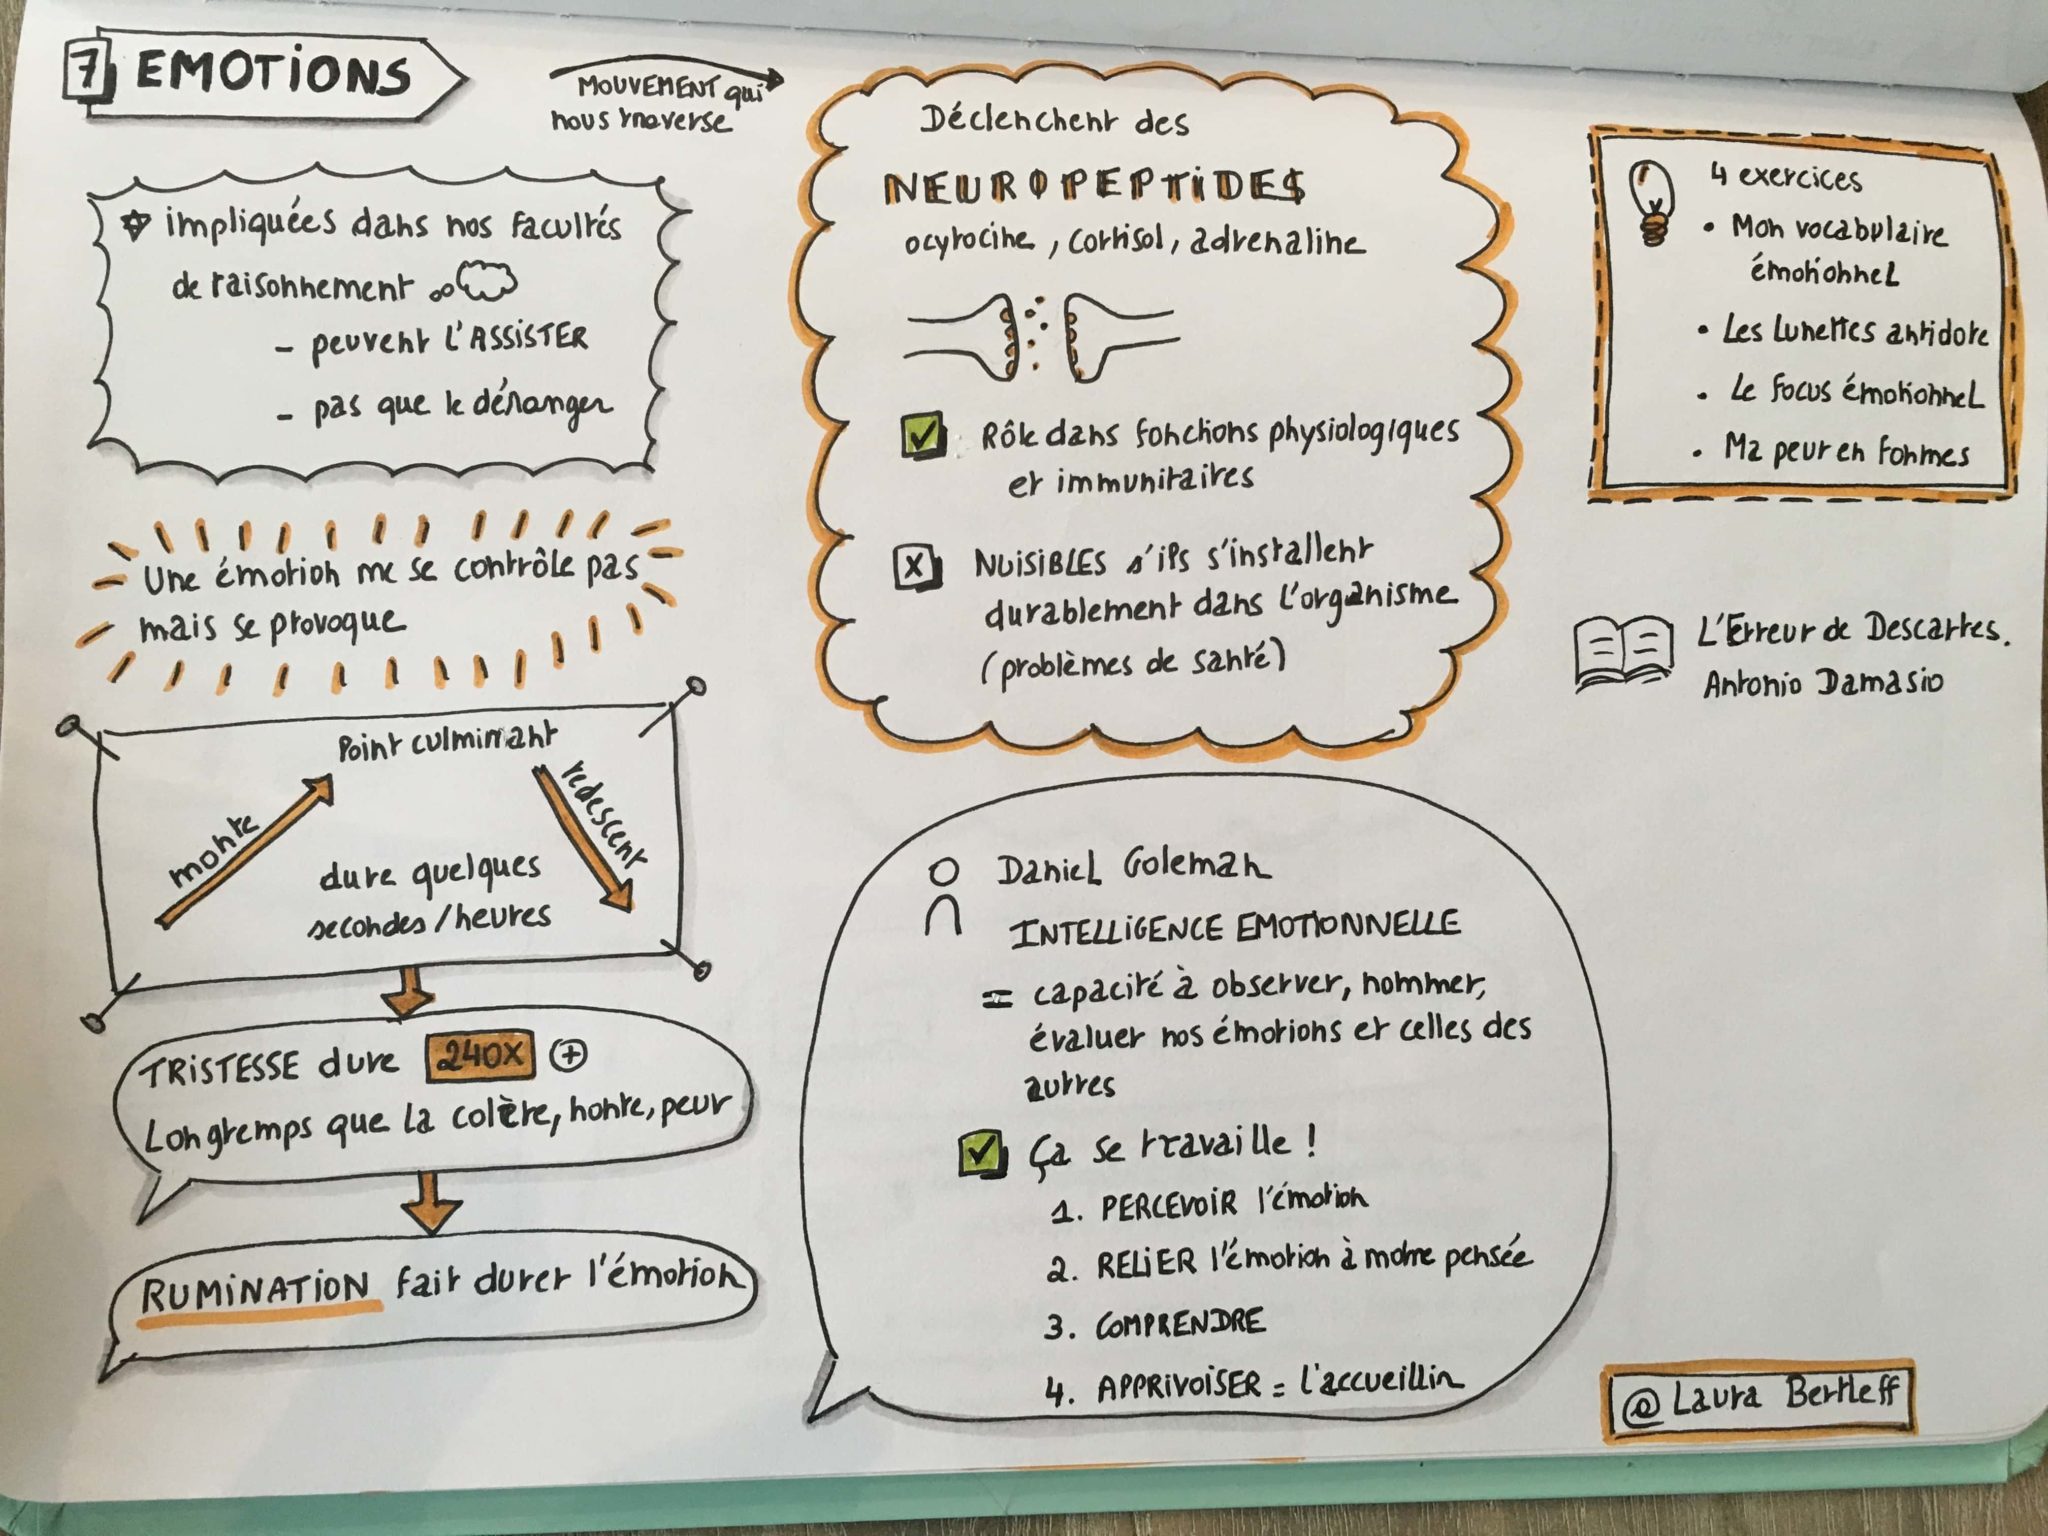 7 EMOTIONS
MOUVEMENT qui
nous traverse
impliquées dans nos facultés
de raisonnement
- peuvent L'ASSISTER
- pas que le déranger
Une émotion ne se contrôle pas
mais se provoque
Point culminant
monte
redescent
dure quelques
secondes/heures
TRISTESSE dure 240X +
Longtemps que la colère, honte, peur
RUMINATION fait durer l'émotion
Déclenchent des
NEUROPEPTIDES
ocytocine, cortisol, adrenaline
Rôle dans fonctions physiologiques
et immunitaires
X NUISIBLES s'ils s'installent
durablement dans l'organisme
(problèmes de santé)
Daniel Goleman
INTELLIGENCE EMOTIONNELLE
= capacité à observer, nommer,
évaluer nos émotions et celles des
autres
Ça se travaille !
1. PERCEVOIR l'émotion
2. RELIER l'émotion à notre pensée
3. COMPRENDRE
4. APPRIVOISER = l'accueillir
4 exercices
• Mon vocabulaire
émotionnel
• Les Lunettes antidote
• Le focus émotionnel
• Ma peur en formes
L'Erreur de Descartes.
Antonio Damasio
@ Laura Bertleff